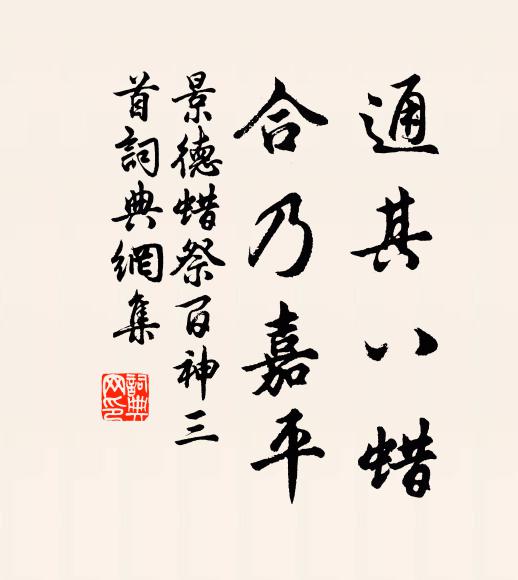 通其八蜡
合乃嘉平
景德蜡祭百神三
首詞典網集
詞典網印